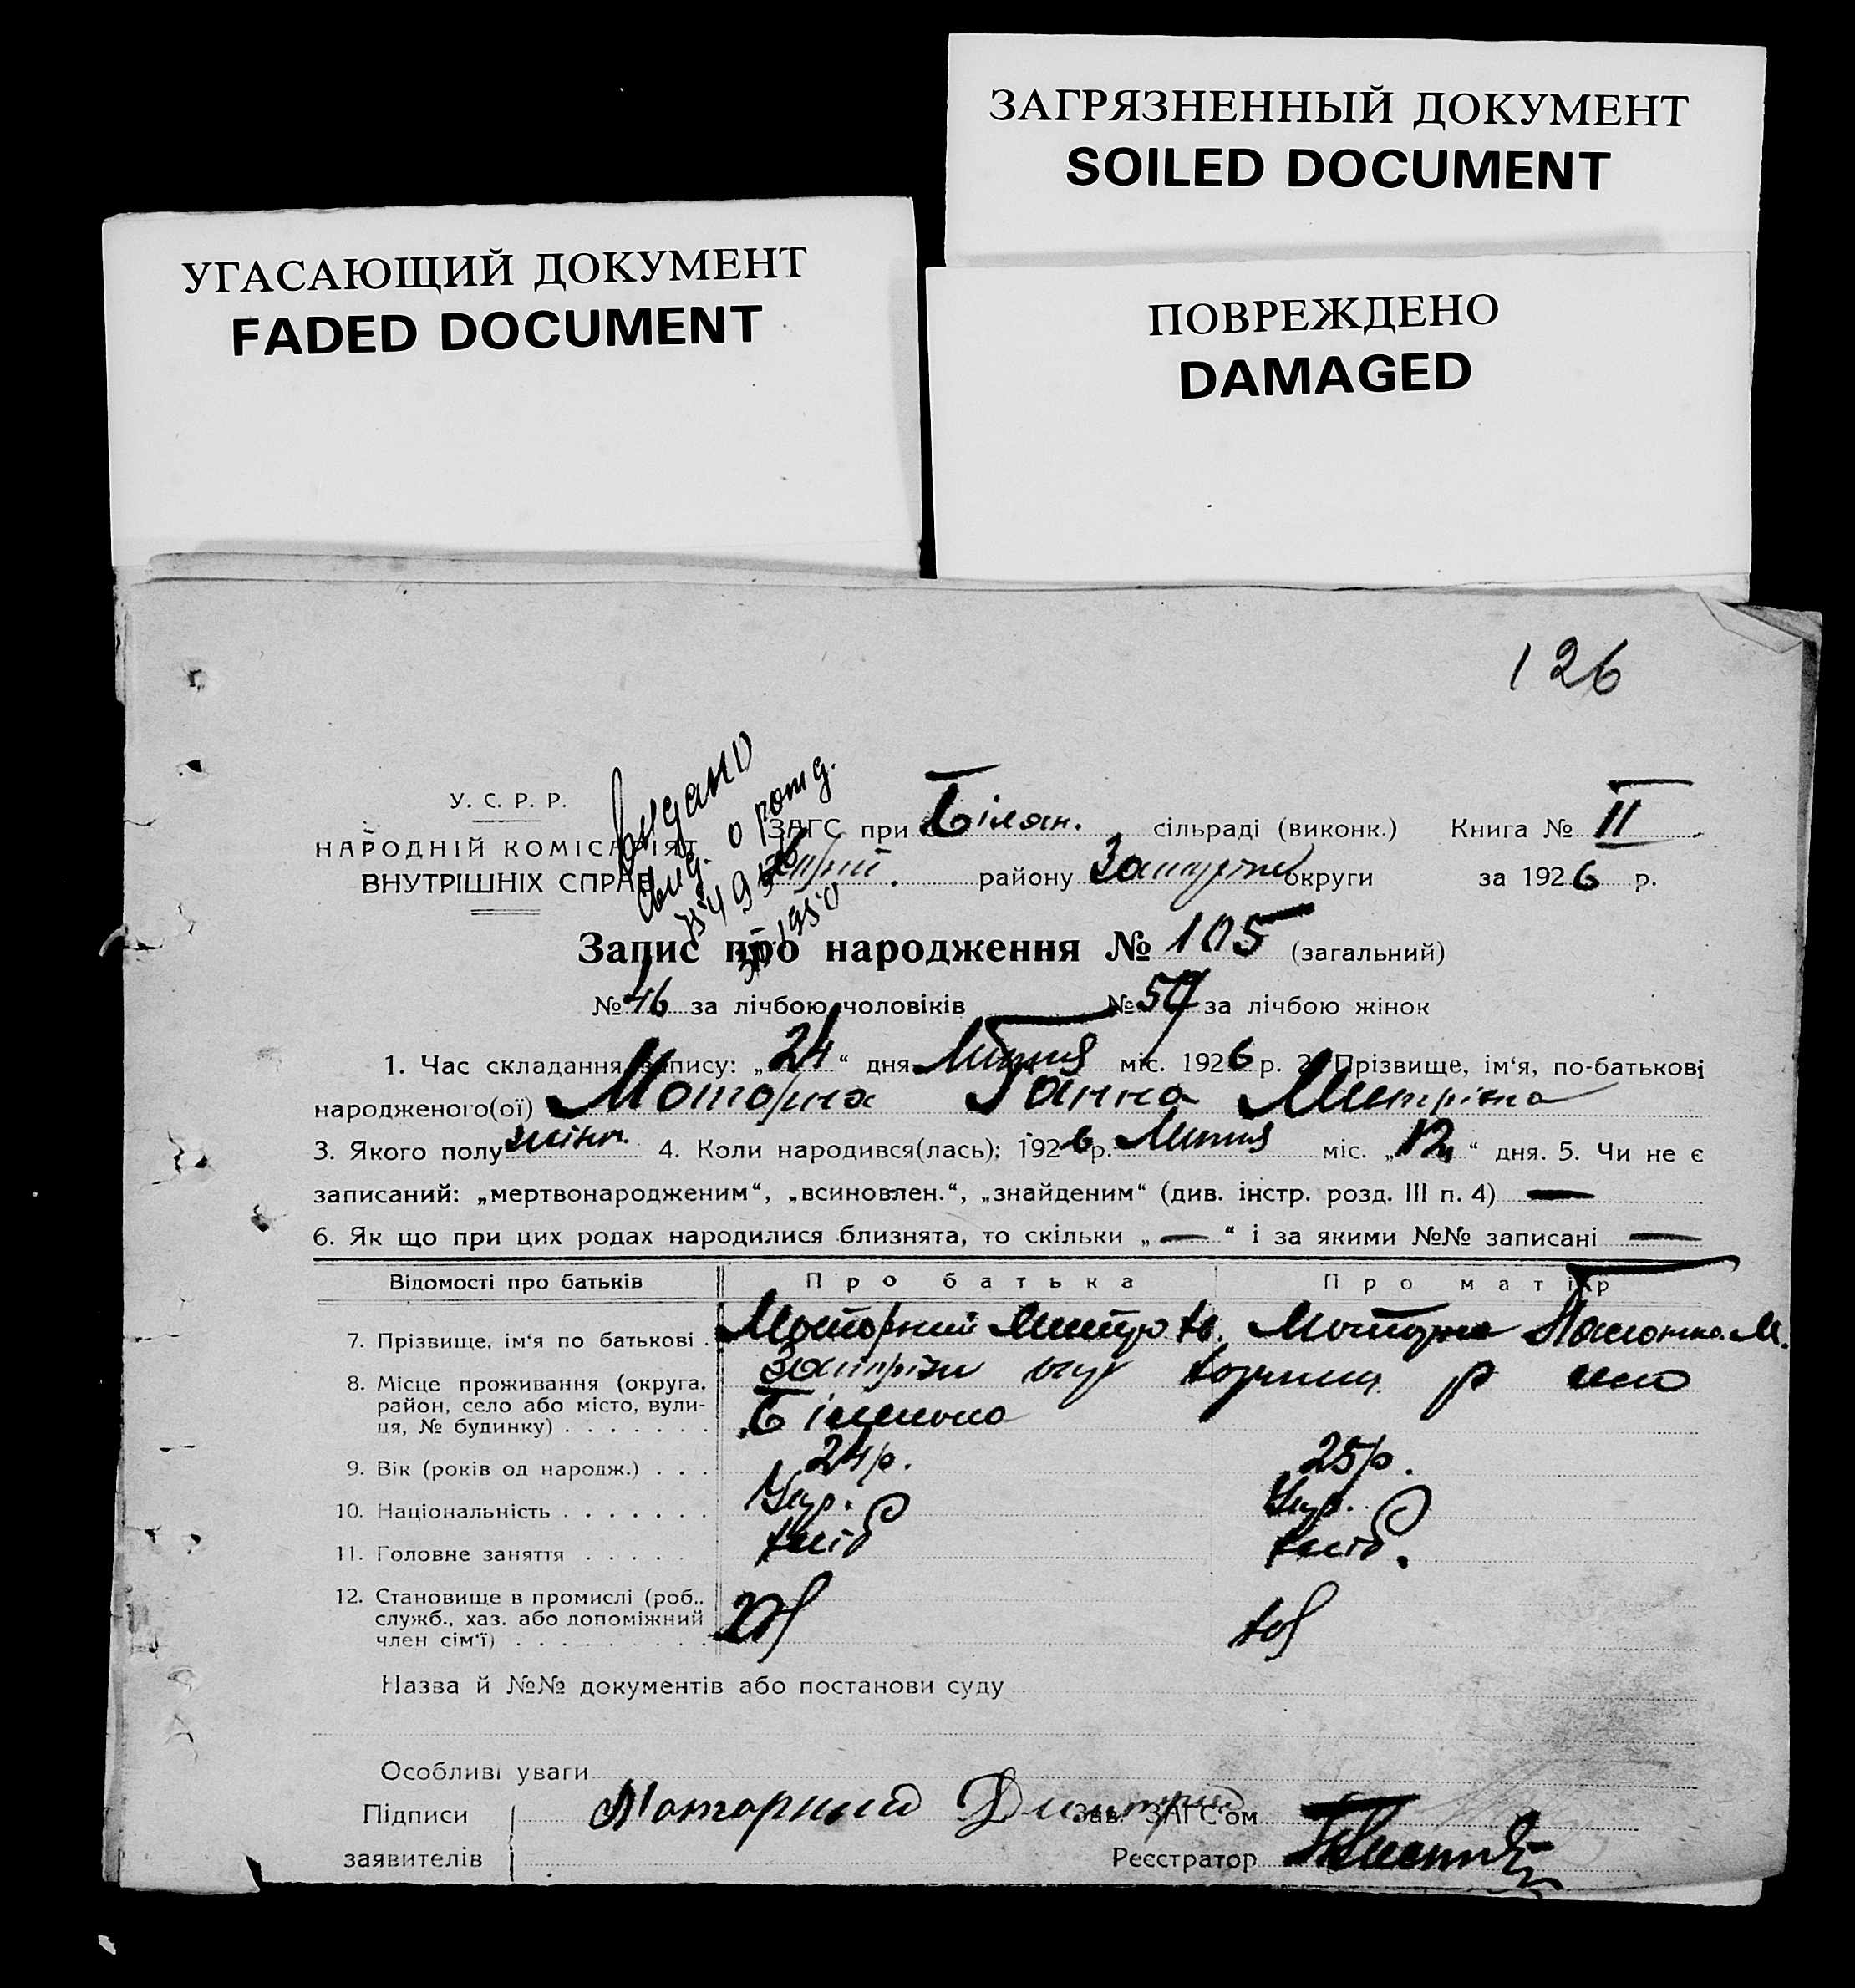 ЗАГРЯЗНЕННЫЙ ДОКУМЕНТ
SOILED DOCUMENT
УГАСАЮЩИЙ ДОКУМЕНТ
FADED DOCUMENT
ПОВРЕЖДЕНО
DAMAGED
126
У. С. Р. Р.
НАРОДНІЙ КОМІСАРІЯТ
ВНУТРІШНІХ СПРАВ
Видано
свид. о рожд.
1950
ЗАГС при Білян. сільраді (виконк.) Книга № II
району округи за 1926 р.
Запис про народження № 105 (загальний)
№ 46 за лічбою чоловіків № 59 за лічбою жінок
1. Час складання запису: „24“ дня Липня міс. 1926 р. 2. Прізвище, ім‘я, по-батькові
народженого(ої) Моторна Ганна Митрівна
3. Якого полу жіноч. 4. Коли народився(лась); 1926 р. Липня міс. „12“ дня. 5. Чи не є
записаний: „мертвонародженим“, „всиновлен.“, „знайденим“ (див. інстр. розд. III п. 4) —
6. Як що при цих родах народилися близнята, то скільки „—“ і за якими №№ записані —
Відомості про батьків Про батька Про матір
7. Прізвище, ім‘я по батькові . Моторний Митро Моторна М.
8. Місце проживання (округа,
район, село або місто, вули-
ця, № будинку) . . . . . . .
9. Вік (років од народж.) . . . 24 р. 25 р.
10. Національність . . . . . . . Укр. Укр.
11. Головне заняття . . . . . хліб хліб.
12. Становище в промислі (роб.,
служб., хаз. або допоміжний
член сім‘ї) . . . . . . . . .
Назва й №№ документів або постанови суду
Особливі уваги
Підписи Моторний Димитрий Зав. ЗАГС‘ом
заявителів Реєстратор